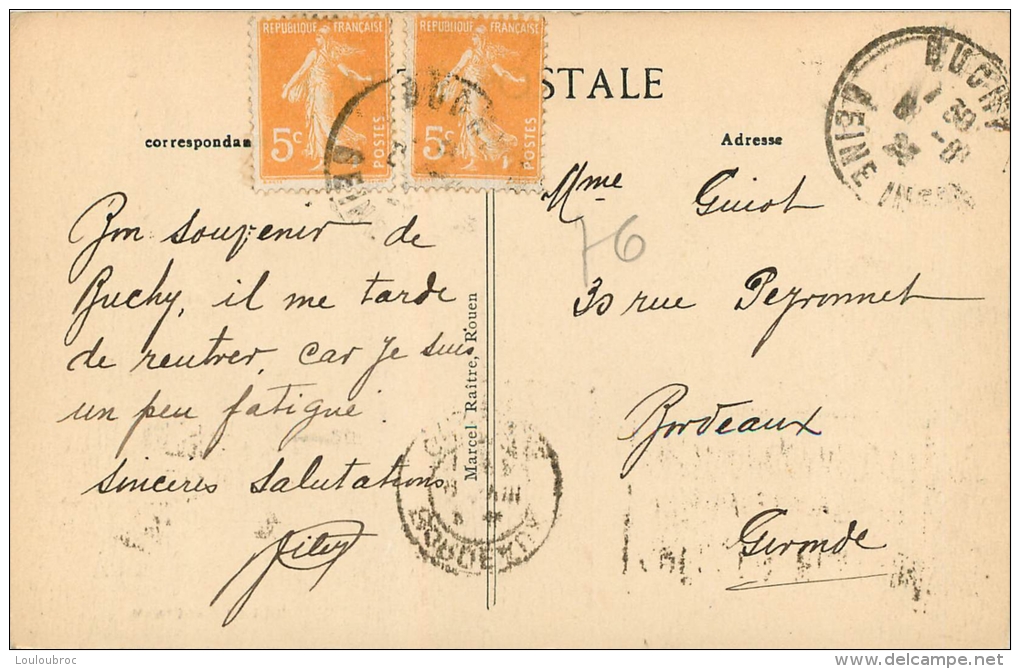 REPUBLIQUE FRANÇAISE
5c
POSTES
REPUBLIQUE FRANÇAISE
5c
POSTES
STALE
correspondan
Adresse
BUCHY
SEINE
Bon souvenir de
Buchy, il me tarde
de rentrer, car je suis
un peu fatigué
sincères salutations
Marcel Raitre, Rouen
Mme Guiot
76
30 rue Peyronnet
Bordeaux
Gironde
BORDEAUX
Louloubroc
delcampe.net